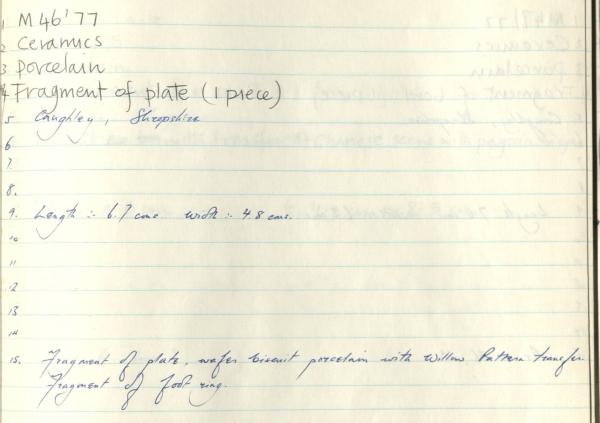 1 M 46'77
2 Ceramics
3 Porcelain
4 Fragment of plate (1 piece)
5 Caughley, Shropshire
6.
7.
8.
9. Length :- 6.7 cms width :- 4.8 cms.
10
11
12
13
14
15. Fragment of plate. wafer biscuit porcelain with Willow Pattern transfer.
Fragment of foot ring.